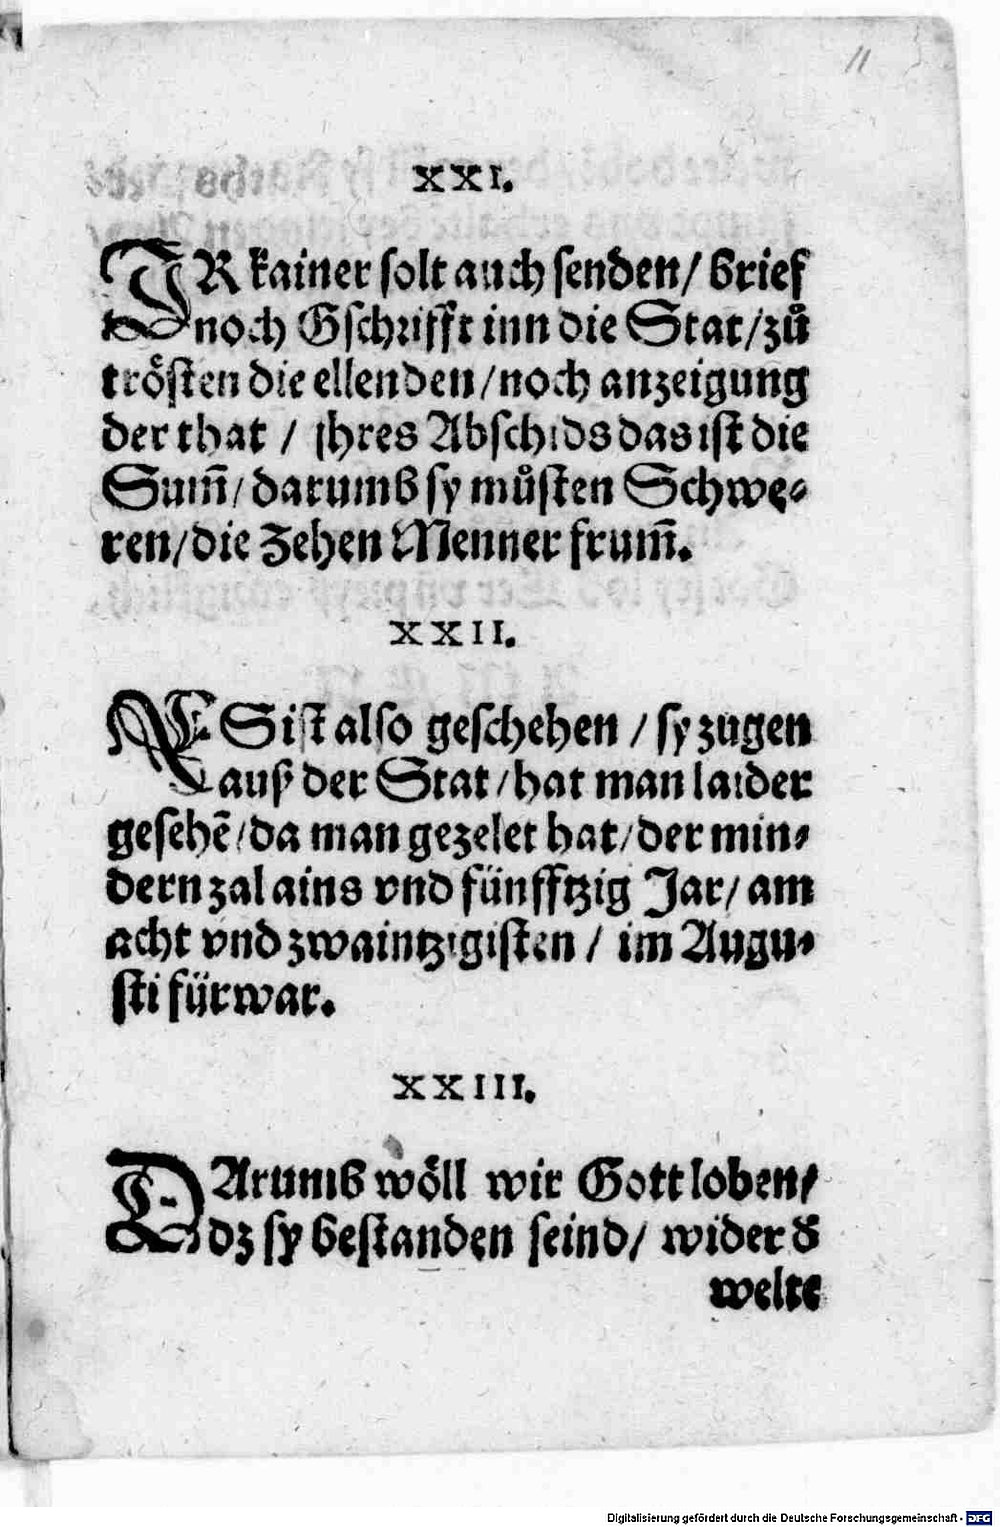 11
XXI.
IR kainer solt auch senden / brief
noch Gschrifft inn die Stat / zů
trösten die ellenden / noch anzeigung
der that / jhres Abschids das ist die
Sum̃ / darumb sy můsten Schwe⸗
ren / die Zehen Menner frum̃.
XXII.
ES ist also geschehen / sy zugen
auß der Stat / hat man laider
gesehẽ / da man gezelet hat / der min⸗
dern zal ains vnd fünfftzig Jar / am
acht vnd zwaintzigisten / im Augu⸗
sti fürwar.
XXIII.
DArumb wöll wir Gott loben /
dz sy bestanden seind / wider d̕
welte
Digitalisierung gefördert durch die Deutsche Forschungsgemeinschaft - DFG